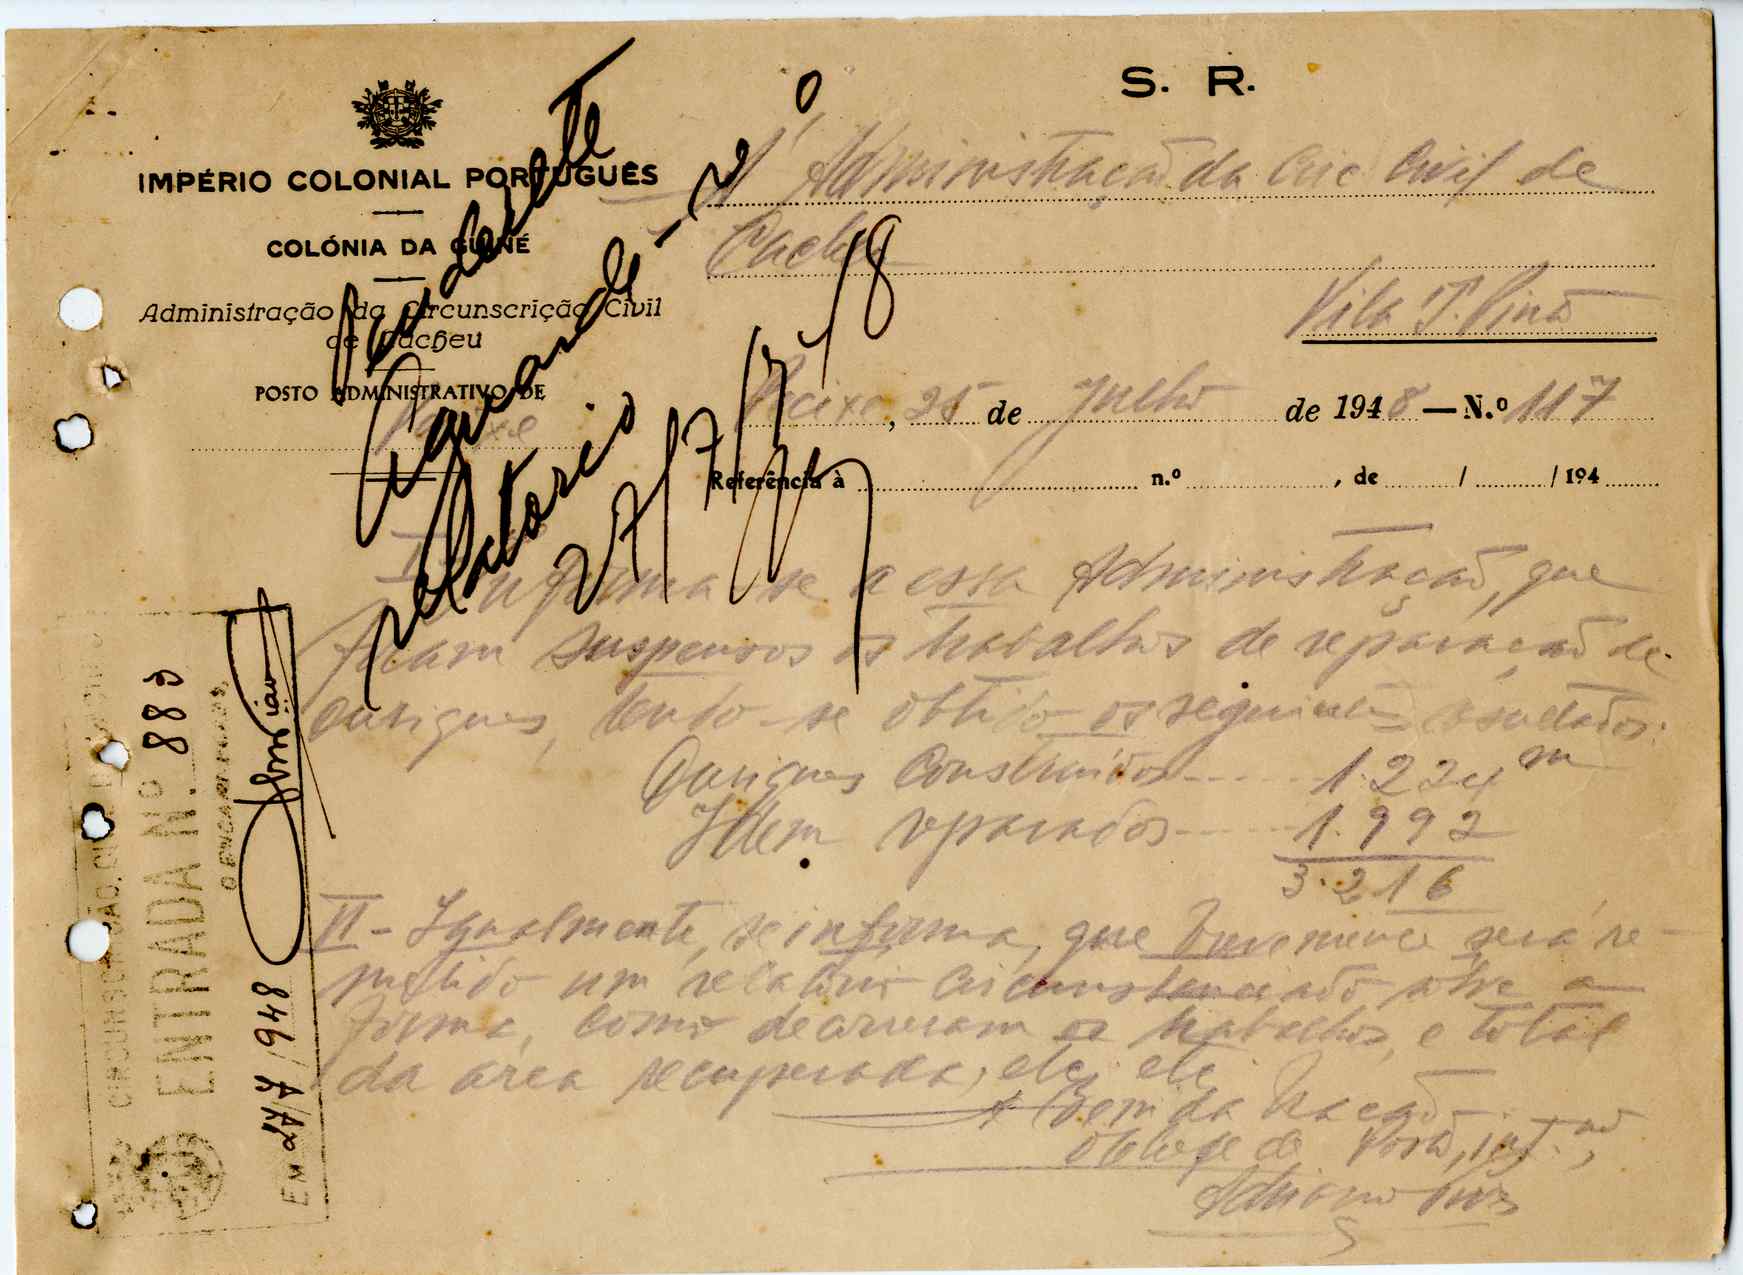 S. R.
IMPÉRIO COLONIAL PORTUGUÊS
COLÓNIA DA GUINÉ
Administração da Circunscrição Civil
de Cacheu
POSTO ADMINISTRATIVO DE
Pecixe
Á Administração da Circ Civil de
Cacheu
Vila T. Pinto
Pecixe, 25 de Julho de 1948 — N.º 117
Referência à n.º , de / / 194
Pendente
Aguarde-se o
relatório
27/7/948
I - Informa-se a essa Administração, que
ficam suspensos os trabalhos de reparação de
ouriques, tendo-se obtido os seguintes resultados:
Ouriques Construídos ----- 1.224 m
Idem reparados ----- 1.992
3.216
II - Igualmente, se informa, que brevemente será re-
metido um relatório circunstanciado sôbre a
forma, como decorreram os trabalhos, e total
da área recuperada, etc, etc
A Bem da Nação
O Chefe de Posto, int.no,
Adriano
CIRCUNSCRIÇÃO CIVIL DE CACHEU
ENTRADA N.º 889
O ENCARREGADO,
EM 27/7/948